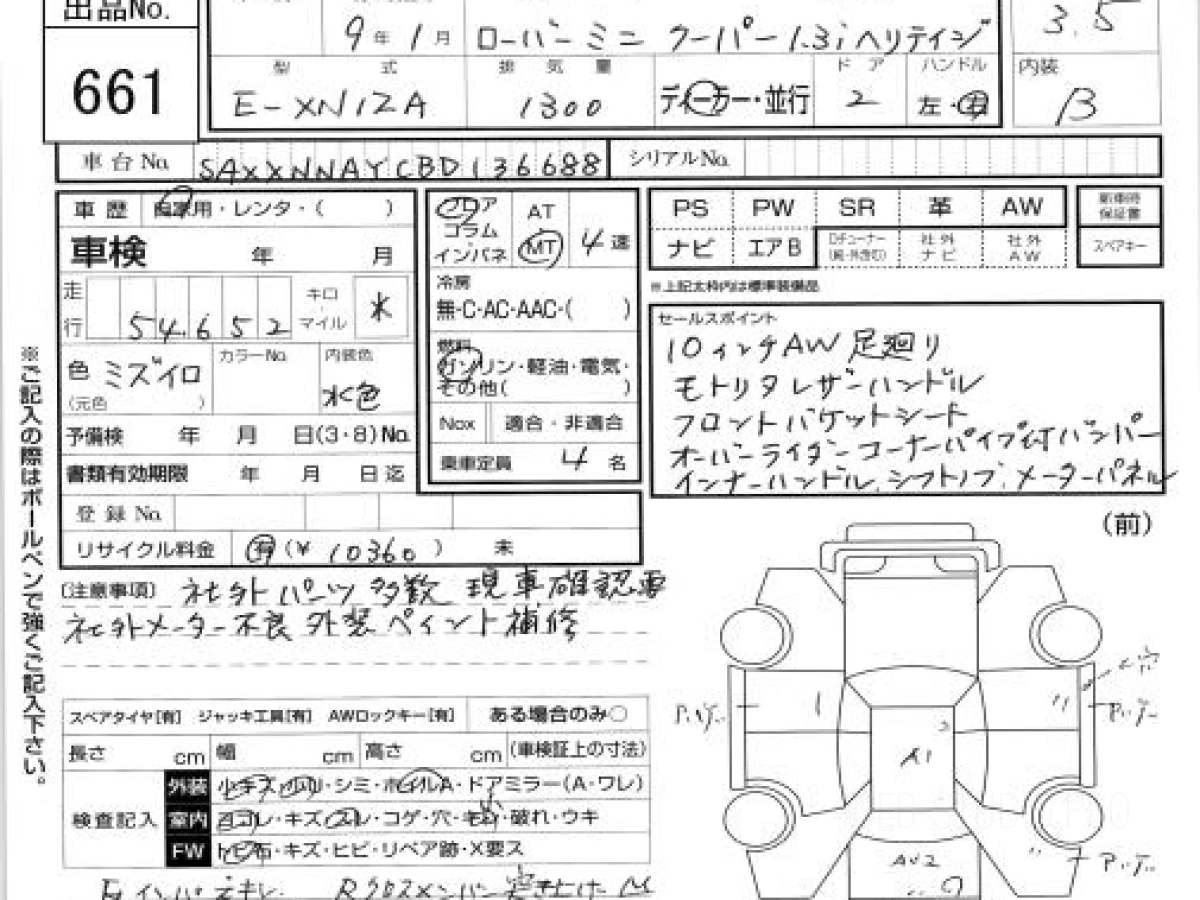 出品No.
661
9年 1月
ローバーミニ クーパー1.3i ヘリテイジ
3.5
型式 排気量 ドア ハンドル 内装
E-XN12A 1300 ディーラー・並行 2 左・右 B
車台No. SAXXNNAYCBD136688 シリアルNo.
車歴 自家用・レンタ・( )
車検 年 月
走行 54,652 キロ マイル
色 ミズイロ
(元色 )
カラーNo.
内装色 水色
予備検 年 月 日(3・8)No.
書類有効期限 年 月 日迄
登録No.
リサイクル料金 有(¥ 10360 ) 未
フロア
コラム
インパネ
AT
MT 4速
冷房
無-C-AC-AAC-( )
燃料
ガソリン・軽油・電気・
その他( )
Nox 適合・非適合
乗車定員 4名
PS PW SR 革 AW
ナビ エアB Dチューナー 社外ナビ 社外AW
新車時保証書
スペアキー
※上記太枠内は標準装備品
セールスポイント
10インチAW 足廻り
モトリタレザーハンドル
フロントバケットシート
オーバーライダーコーナーパイプ付バンパー
インナーハンドル、シフトノブ、メーターパネル
[注意事項] 社外パーツ多数 現車確認要
社外メーター不良 外装ペイント補修
※ご記入の際はボールペンで強くご記入下さい。
スペアタイヤ[有] ジャッキ工具[有] AWロックキー[有] ある場合のみ○
長さ cm 幅 cm 高さ cm (車検証上の寸法)
検査記入
外装 小キズ・凹・シミ・ホイルA・ドアミラー(A・ワレ)
室内 ヨゴレ・キズ・スレ・コゲ・穴・破れ・ウキ
FW トビ石・キズ・ヒビ・リペア跡・X要ス
(前)
穴
A1